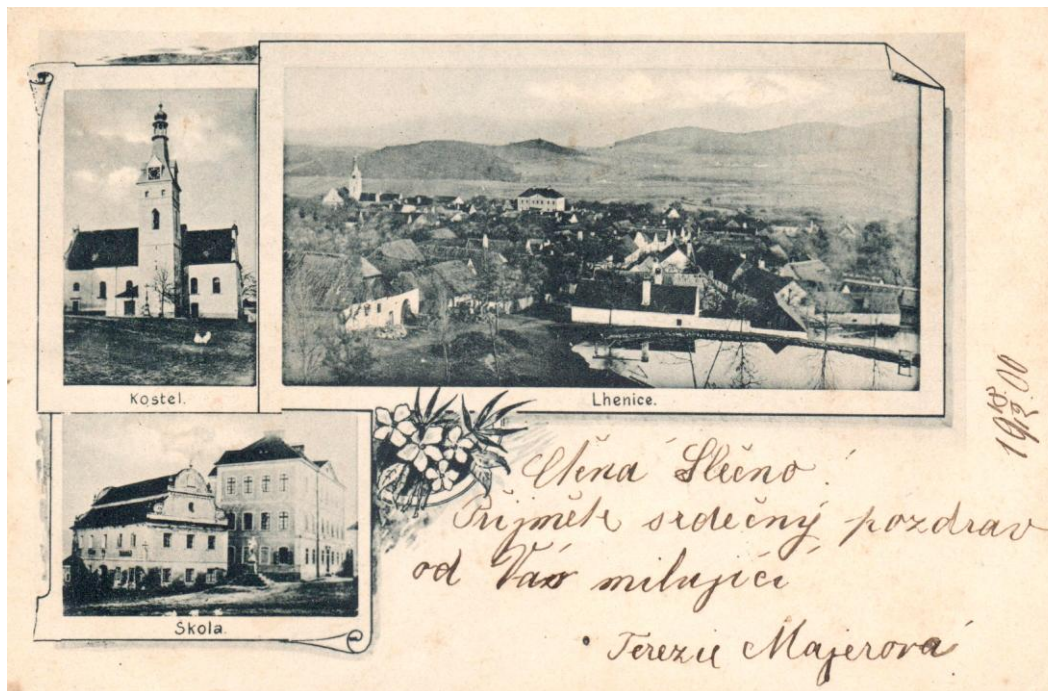 Kostel.
Lhenice.
Skola.
Ctěná Slečno!
Přijměte srdečný pozdrav
od Vás milující
Terezie Majerová
19 18/12 00